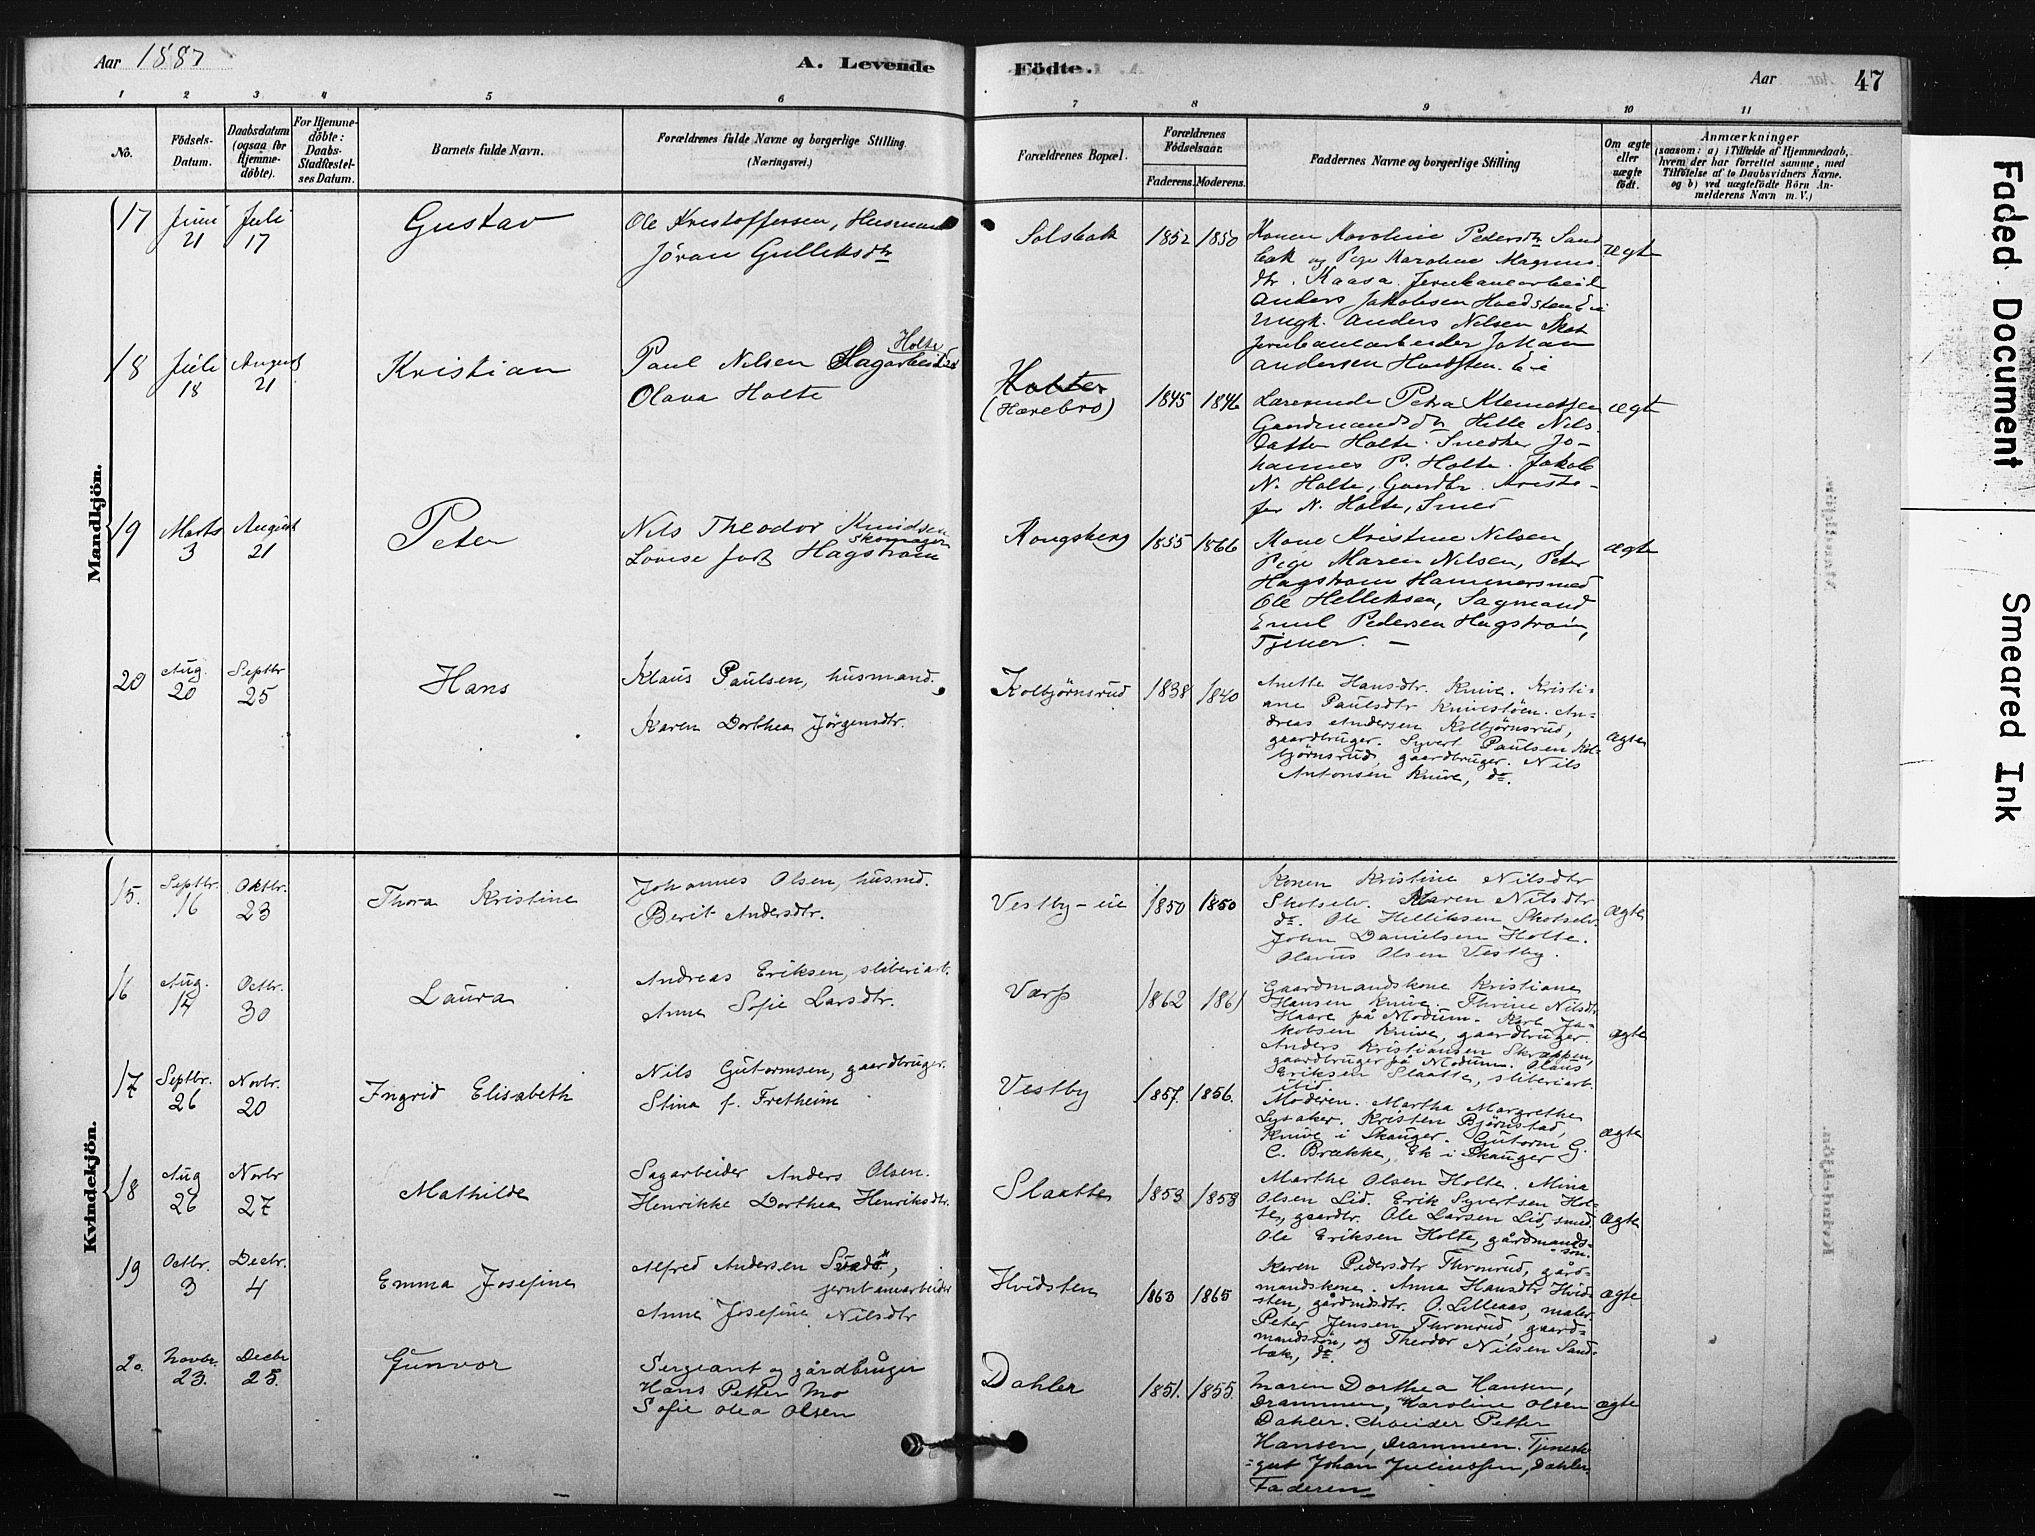 Aar 1887
A. Levende
Födte.
Aar
47
1 2 3 4 5 6 7 8 9 10 11
No.
Födsels-Datum.
Daabsdatum (ogsaa for Hjemmedöbte).
For Hjemmedöbte: Daabs-Stadfæstelses Datum.
Barnets fulde Navn.
Forældrenes fulde Navne og borgerlige Stilling. (Næringsvei.)
Forældrenes Bopæl.
Forældrenes Födselsaar.
Faderens. Moderens.
Faddernes Navne og borgerlige Stilling
Om ægte eller uægte födt.
Anmærkninger
(saasom: a) i Tilfælde af Hjemmedaab, hvem der har forrettet samme, med Tilföielse af to Daabsvidners Navne. og b) ved uægtefödte Börn Anmelderens Navn m. V.)
Mandkjön.
17 Juni 21 Juli 17 Gustav
Ole Kristoffersen, Husmand
Jøran Gulliksdtr
Solsbak 1852 1850
Konen Karoline Pedersdtr Sand
bak og Pige Karoline Magnus
dtr. Kaasa. Jernbanearbeid
Anders Jakobsen Hvidsten Eie
Ungk. Anders Nilsen
Jernbanearbeider Johan
Andersen Hvidsten. Eie
ægte
18 Juli 18 August 21 Kristian
Paul Nilsen Holte Sagarbeider
Olava Holte
Holter
(Hærebro) 1845 1846
Lærerinde Petra Klemetsen
Gaardmandsdtr Helle Nils
datter Holte. Snedker Jo-
hannes P. Holte. Jakob
N. Holte, Gaardbr. Kristo-
fer N. Holte, Smed
ægte
19 Marts 3 August 21 Peter
Nils Theodor Knudsen
Skomager
Lovise født Hagstrøm
Kongsberg 1855 1866
Kone Kristine Nilsen
Pige Maren Nilsen, Peter
Hagstrøm Hammersmed
Ole Helliksen, Sagmand
Emil Pedersen Hagstrøm,
Tjener. —
ægte
20 Aug. 20 Septbr 25 Hans
Klaus Paulsen, husmand.
Karen Dorthea Jörgensdtr.
Kolbjørnsrud 1838 1840
Anette Hansdtr. Knive. Kristi-
ane Paulsdtr Knivestøen. An-
dreas Andersen Kolbjørnsrud,
gaardbruger. Syvert Paulsen Kol-
bjørnsrud, gaardbruger. Nils
Antonsen Knive, do.
ægte
Kvindekjön.
15. Septbr. 16 Oktbr. 23 Thora Kristine
Johannes Olsen, husmd.
Berit Andersdtr.
Vestby-eie 1850 1850
Konen Kristine Nilsdtr
Skotselv. Maren Nilsdtr
do. Ole Helliksen Skotselv.
John Danielsen Holte.
Olavus Olsen Vestby.
ægte
16 Aug. 14 Octbr. 30 Laura
Andreas Eriksen, sliberiarb.
Anne Sofie Larsdtr.
Værp 1862 1861
Gaardmandskone Kristiane
Hansen Knive. Thrine Nilsdtr
Haare på Modum. Karl Ja-
kobsen Knive, gaardbruger.
Anders Kristiansen Skræppen,
gaardbruger på Modum. Olaus
Eriksen Slaatte, sliberiarb.
ægte
17 Septbr. 26 Novbr. 20 Ingrid Elisabeth
Nils Gutormsen, gaardbruger.
Stina f. Fretheim
Vestby 1857. 1856.
Moderen. Martha Margrethe
Lysaker. Kristen Bjørnstad,
Knive i Skauger. Gutorm G.
C. Brække, Ek i Skauger
ægte
18 Aug 26 Novbr 27 Mathilde
Sagarbeider Anders Olsen.
Henrikke Dorthea Henriksdtr.
Slaatte 1853 1853
Marthe Olsen Holte. Mina
Olsen Lid. Erik Syvertsen Hol-
te, gaardbr. Ole Larsen Lid, smed.
Ole Eriksen Holte, gårdmands-
søn.
ægte
19 Octbr. 3 Decbr. 4 Emma Josefine
Alfred Andersen
jernbanearbeider
Anne Josefine Nilsdtr
Hvidsten 1863 1865
Karen Pedersdtr Thronrud, gård-
mandskone. Anna Hansdtr Hvid-
sten, gårdmdsdtr. O. Lilleaas, maler.
Peter Jensen Thronrud, gaard-
mandssøn, og Theodor Nilsen Sand-
bæk, do.
ægte
20. Novbr. 23. Decbr 25. Gunvor
Sergeant og gårdbruger
Hans Petter Mo
Sofie Olea Olsen
Dahler 1851. 1855.
Maren Dorthea Hansen,
Drammen, Karoline Olsen
Dahler. Arbeider Petter
Hansen, Drammen. Tjeneste-
gut Johan Juliussen, Dahler.
Faderen
ægte
Faded Document
Smeared Ink